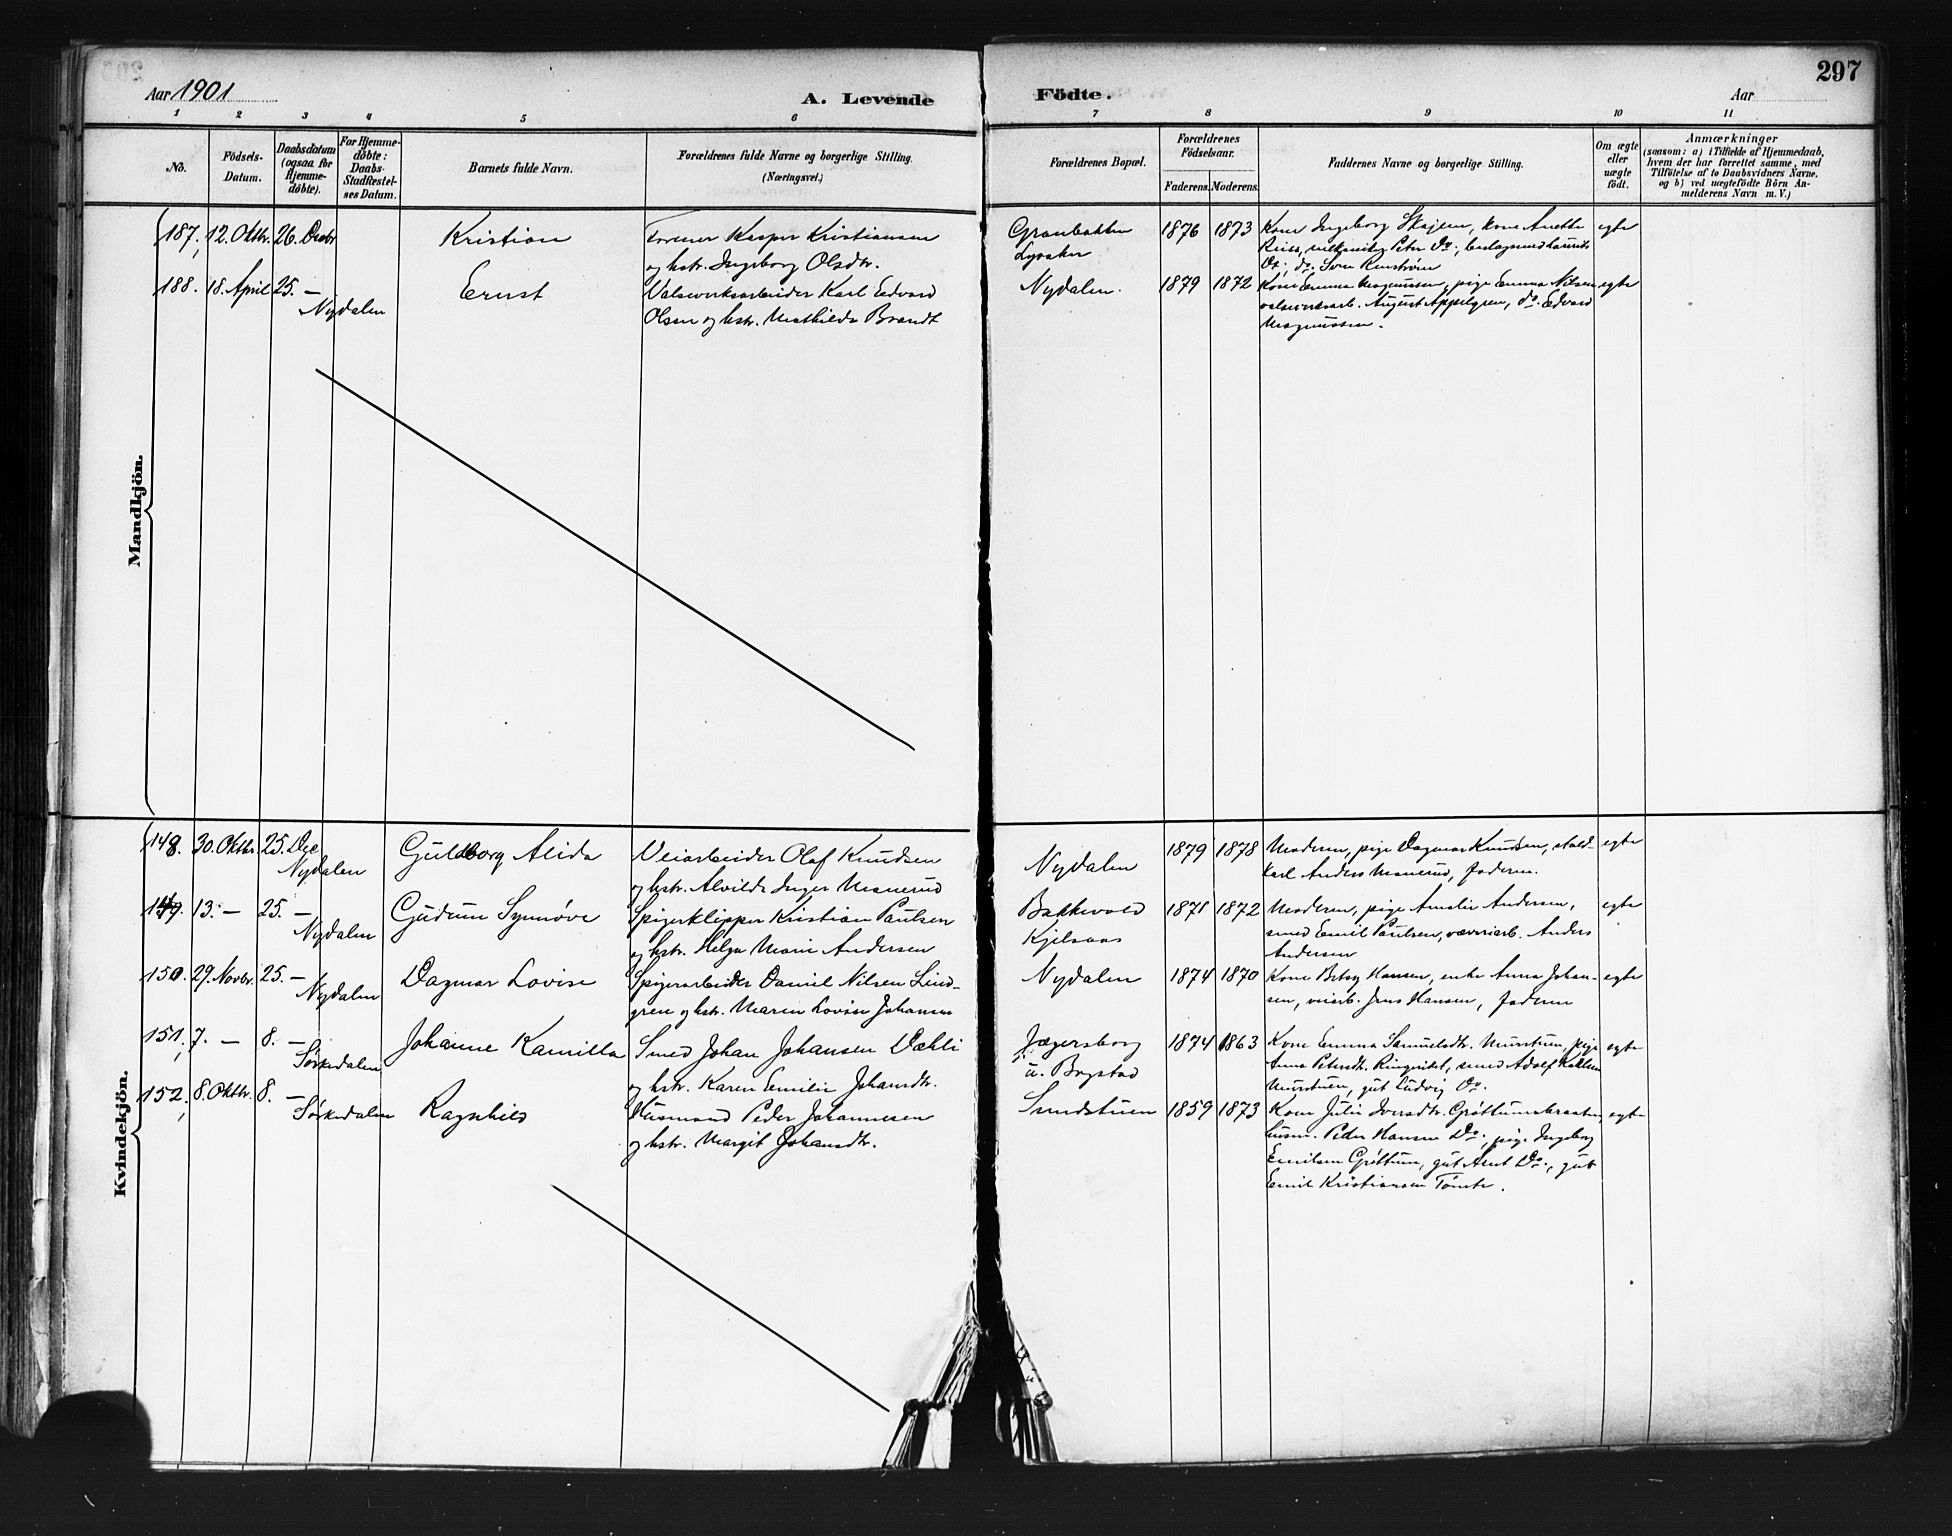 297
Aar 1901
A. Levende
Födte.
Aar
1 2 3 4 5 6 7 8 9 10 11
No.
Födsels-
Datum.
Daabsdatum
(ogsaa for
Hjemme-
döbte).
For Hjemme-
döbte:
Daabs-
Stadfæstel-
ses Datum.
Barnets fulde Navn.
Forældrenes fulde Navne og borgerlige Stilling.
(Næringsvei.)
Forældrenes Bopæl.
Forældrenes
Födselsaar.
Faderens. Moderens.
Faddernes Navne og borgerlige Stilling.
Om ægte
eller
uægte
födt.
Anmærkninger
(saasom: a) i Tilfælde af Hjemmedaab,
hvem der har forrettet samme, med
Tilföielse af to Daabsvidners Navne.
og b) ved uægtefödte Börn An-
melderens Navn m. V.)
Mandkjön.
187. 12. Oktbr. 26. Decbr Kristian
Kasper Kristiansen
og hstr. Ingeborg Olsdtr.
Granbakken
Lysaker
1876 1873
Kone Ingeborg Skojen, kone Anette
Peter Do.,
Do., do. Sven
egte
188. 18. April 25. — Nydalen
Ernst
Valseverksarbeider Karl Edvard
Olsen og hstr. Mathilde Brandt
Nydalen.
1879 1872
Kone Emma Magnussen, pige Emma Nilsen
valseverksarb. August Appelgren, do. Edvard
Magnussen.
egte
Kvindekjön.
148. 30. Oktbr. 25. Dec Nydalen
Guldborg Alida
Veiarbeider Olaf Knudsen
og hstr. Alvilde Inger Manerud
Nydalen
1879 1878
Moderen, pige Dagmar Knudsen, stald-
karl Anders Manerud, faderen.
egte
149. 13. — 25. — Nydalen
Gudrun Synnöve
Spigerklipper Kristian Paulsen
og hstr. Helga Marie Andersen
Bakkevold
Kjelsaas
1871 1872
Moderen, pige Amalie Andersen,
smed Emil Paulsen, væveriarb. Anders
Andersen
egte
150. 29. Novbr. 25. — Nydalen
Dagmar Lovise
Spigerarbeider Daniel Nilsen Lind-
gren og hstr. Maren Lovise Johansen
Nydalen
1874 1870
Kone Betsy Hansen, enke Anna Johan-
sen, veiarb. Jens Hansen, faderen
egte
151. 7. — 8. — Sørkedalen
Johanne Kamilla
Smed Johan Johansen Dæhli
og hstr. Karen Emilie Johansdtr.
Jægersborg
u. Bogstad
1874 1863
Kone Emma Samuelsdtr. Murstuen, pige
Anna Petersdtr. Ringeriket, smed Adolf
Murstuen, gut Ludvig Do.
egte
152. 8. Oktbr. 8. — Sørkedalen
Ragnhild
Husmand Peder Johannesen
og hstr. Margit Johansdtr.
Smedstuen
1859 1873
Kone Julie Iversdtr. Gröttumsbraaten,
husm. Peder Hansen Do., pige Ingeborg
Emilsen Gröttum, gut Arnt Do., gut
Emil Kristiansen Tömte.
egte